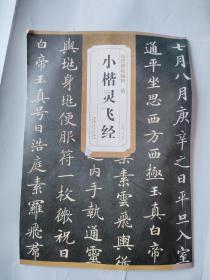 七月八月庚辛之日平旦入室
通平坐思西方西極玉真白帝
衣素雲飛輿從
内手執通靈
小楷灵飞经
身
便服符一枚微祝曰
白帝玉真号曰浩庭素羅飛